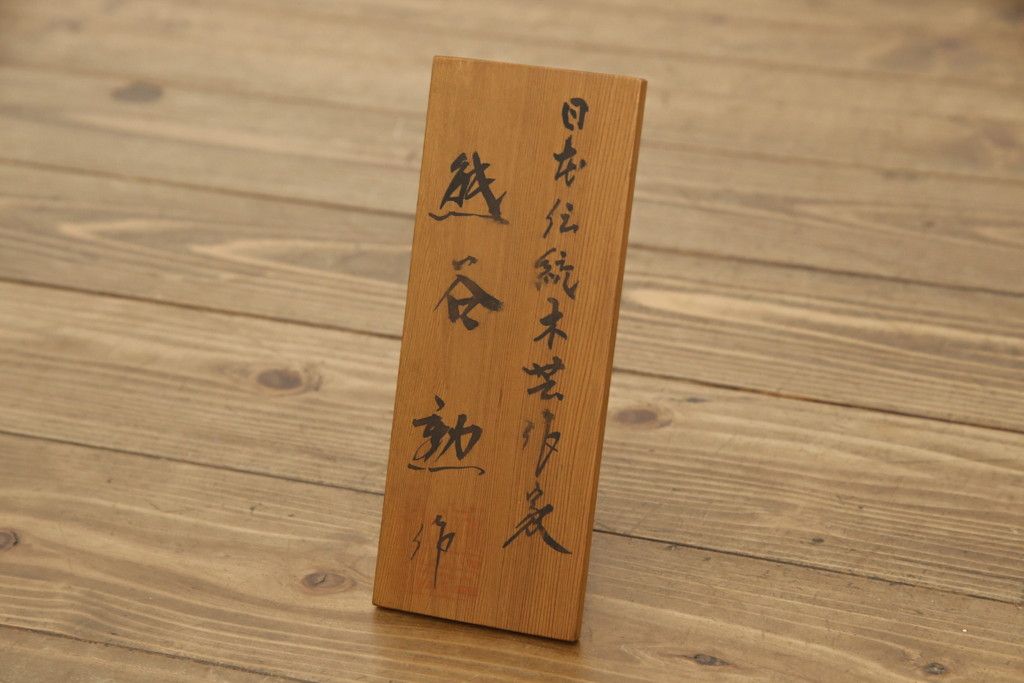 日本伝統木芸作家
熊谷勲作